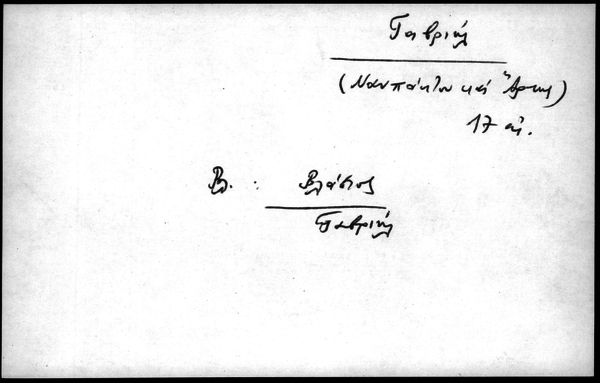 Γαβριήλ
(Ναυπάκτου καί Ἄρτης)
17 αἰ.
Βλ. : Βλάσιος
Γαβριήλ